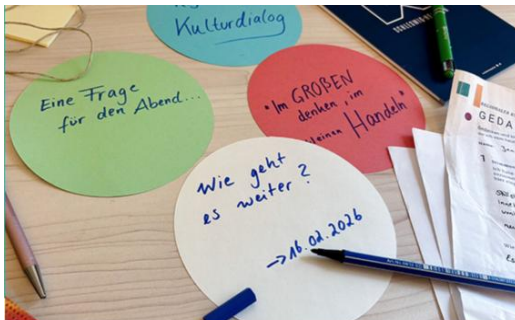 Kulturdialog
Eine Frage
für den Abend...
"Im GROßEN
denken, im
kleinen Handeln"
Wie geht
es weiter?
→16.02.2026
GEDA